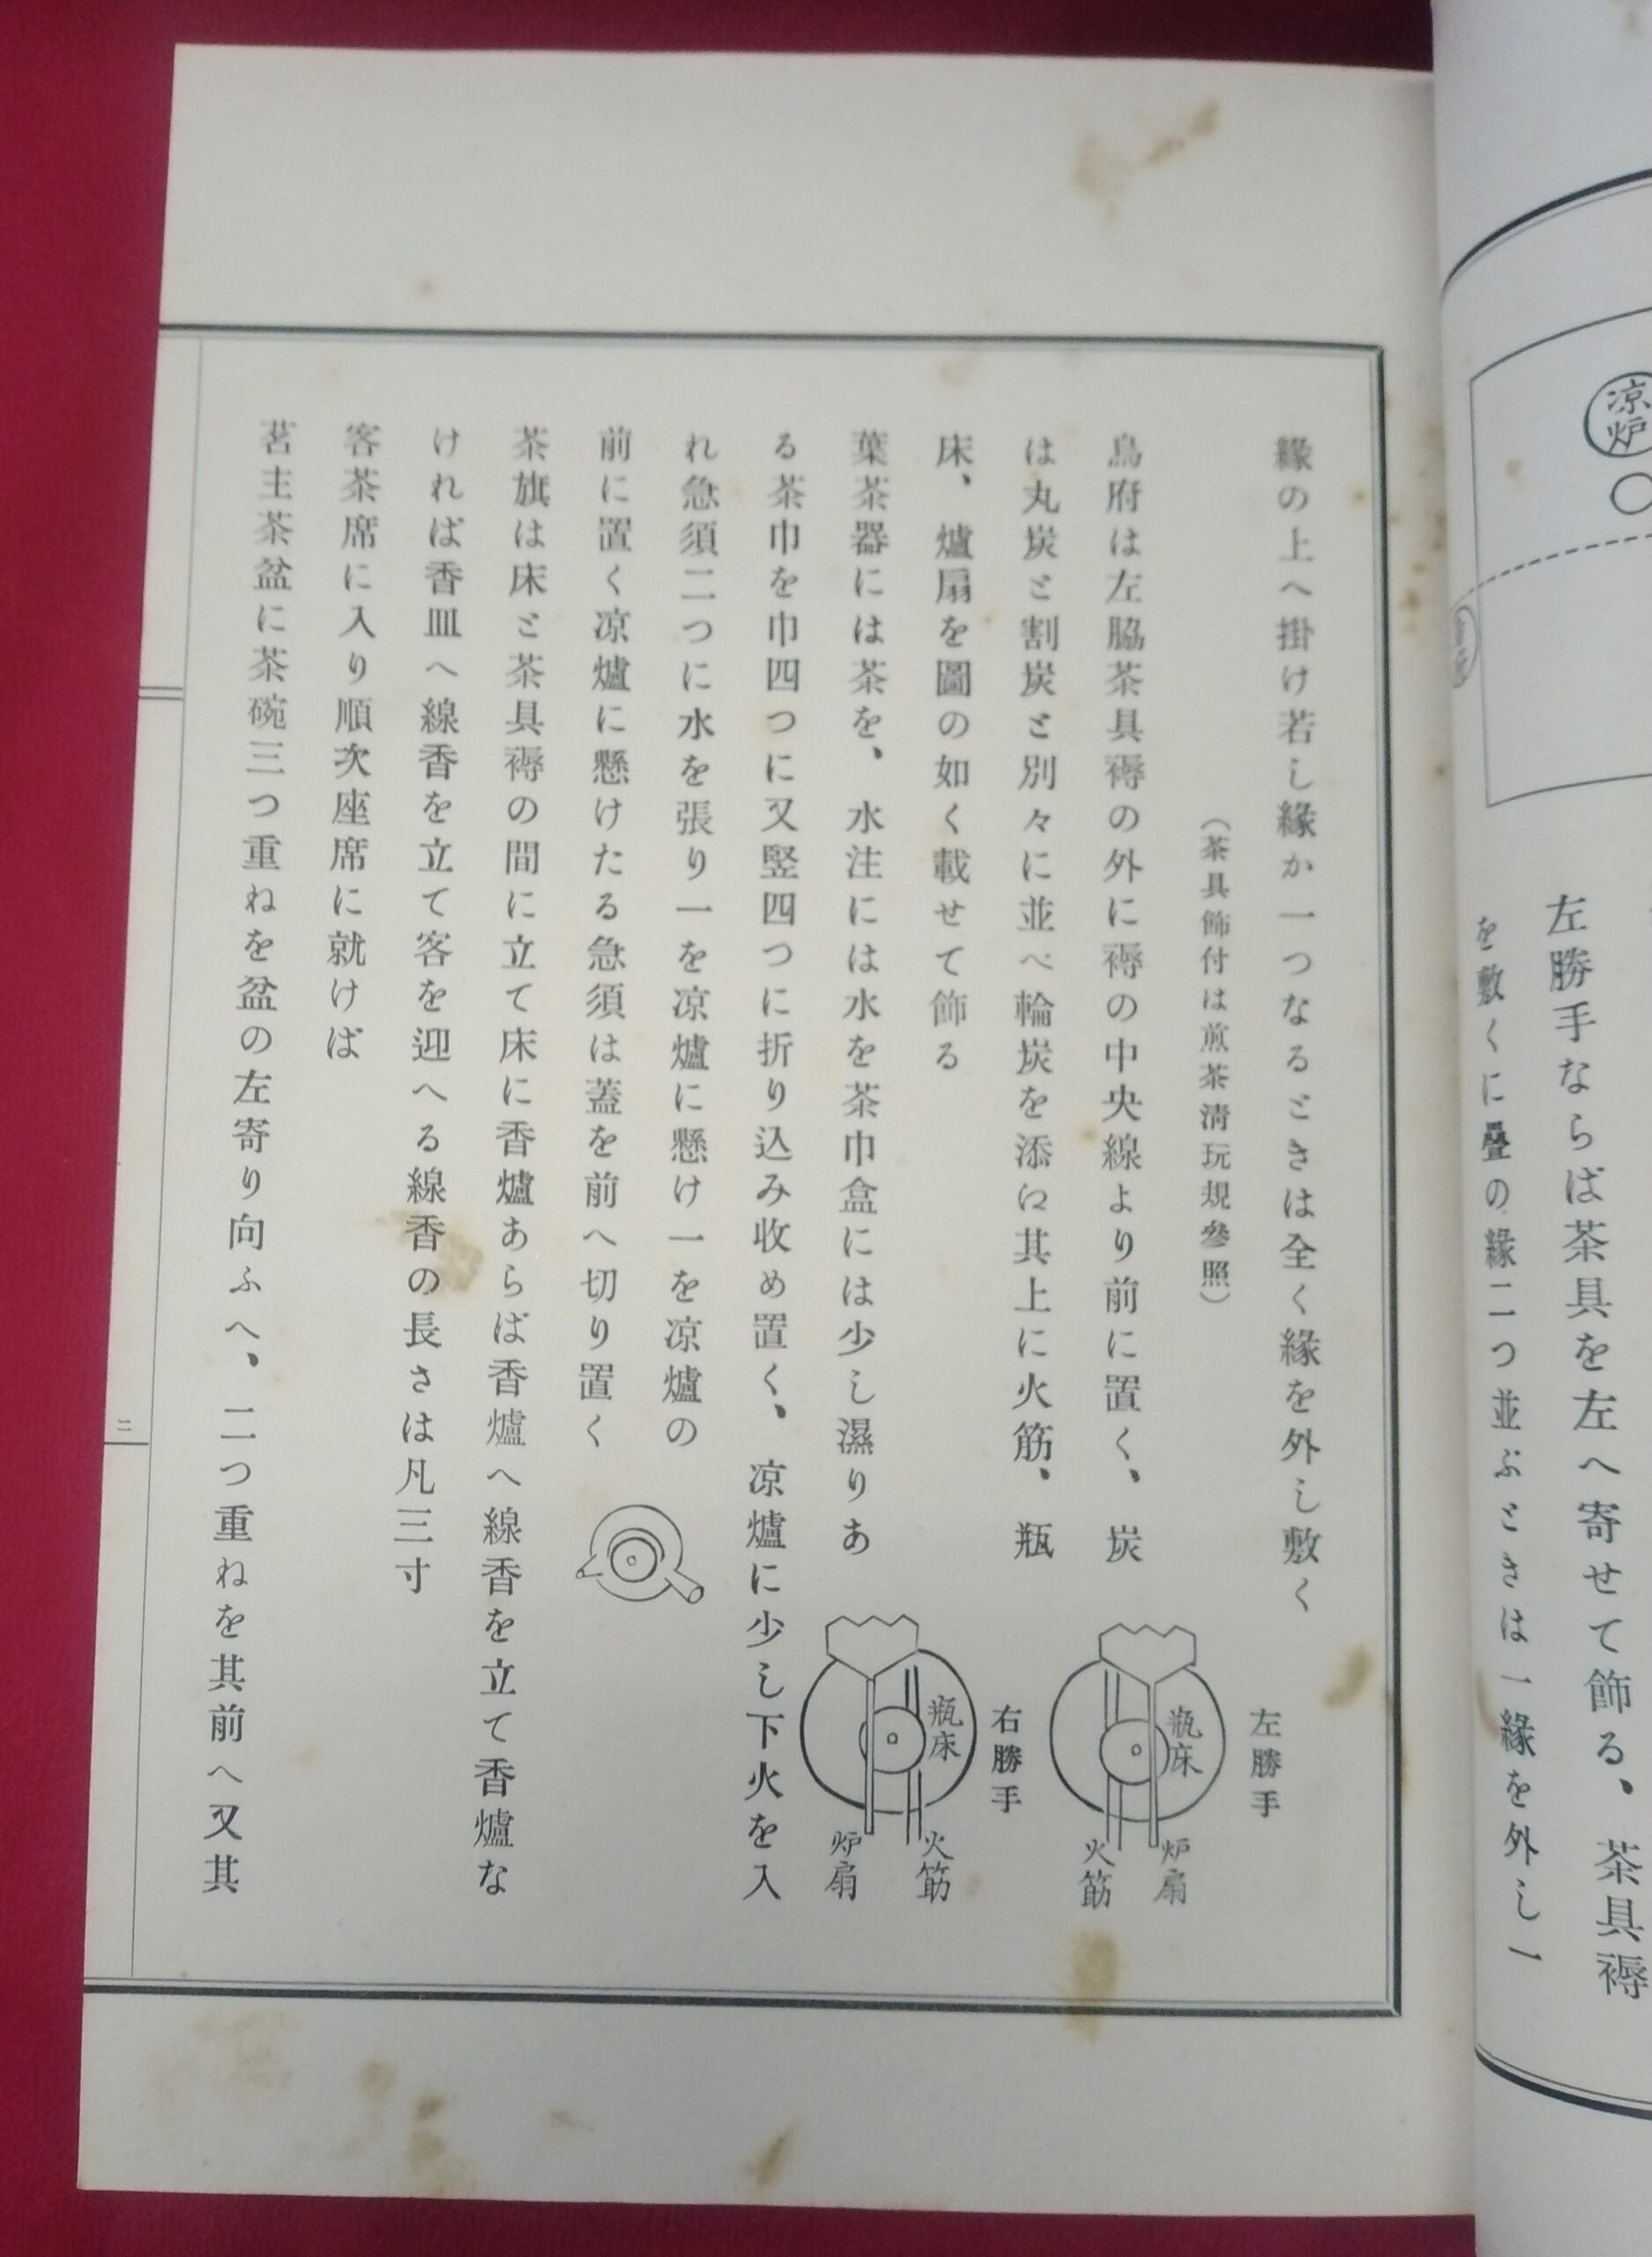 凉炉
左勝手ならば茶具を左へ寄せて飾る、茶具褥
を敷くに疊の緣二つ並ぶときは一緣を外し一
緣の上へ掛け若し緣か一つなるときは全く緣を外し敷く
（茶具飾付は煎茶淸玩規參照）
烏府は左脇茶具褥の外に褥の中央線より前に置く、炭
は丸炭と割炭と別々に並べ輪炭を添に其上に火筋、瓶
床、爐扇を圖の如く載せて飾る
左勝手
瓶床
炉扇
火筋
右勝手
瓶床
火筋
炉扇
葉茶器には茶を、水注には水を茶巾盒には少し濕りあ
る茶巾を巾四つに又竪四つに折り込み收め置く、凉爐に少し下火を入
れ急須二つに水を張り一を凉爐に懸け一を凉爐の
前に置く凉爐に懸けたる急須は蓋を前へ切り置く
茶旗は床と茶具褥の間に立て床に香爐あらば香爐へ線香を立て香爐な
ければ香皿へ線香を立て客を迎へる線香の長さは凡三寸
客茶席に入り順次座席に就けば
茗主茶盆に茶碗三つ重ねを盆の左寄り向ふへ、二つ重ねを其前へ又其
二